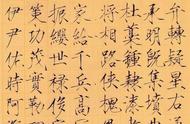 弁轉疑星右
承明既集墳
杜藁鍾隸
將相路俠槐
家給千兵高
振纓世祿侈
策功茂實勒
伊尹佐時阿